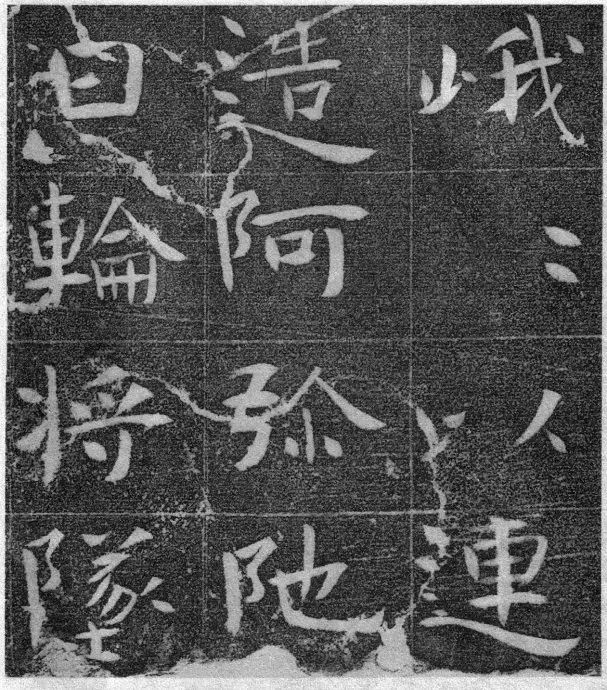 峨〻連
造阿弥陁
日輪将墜